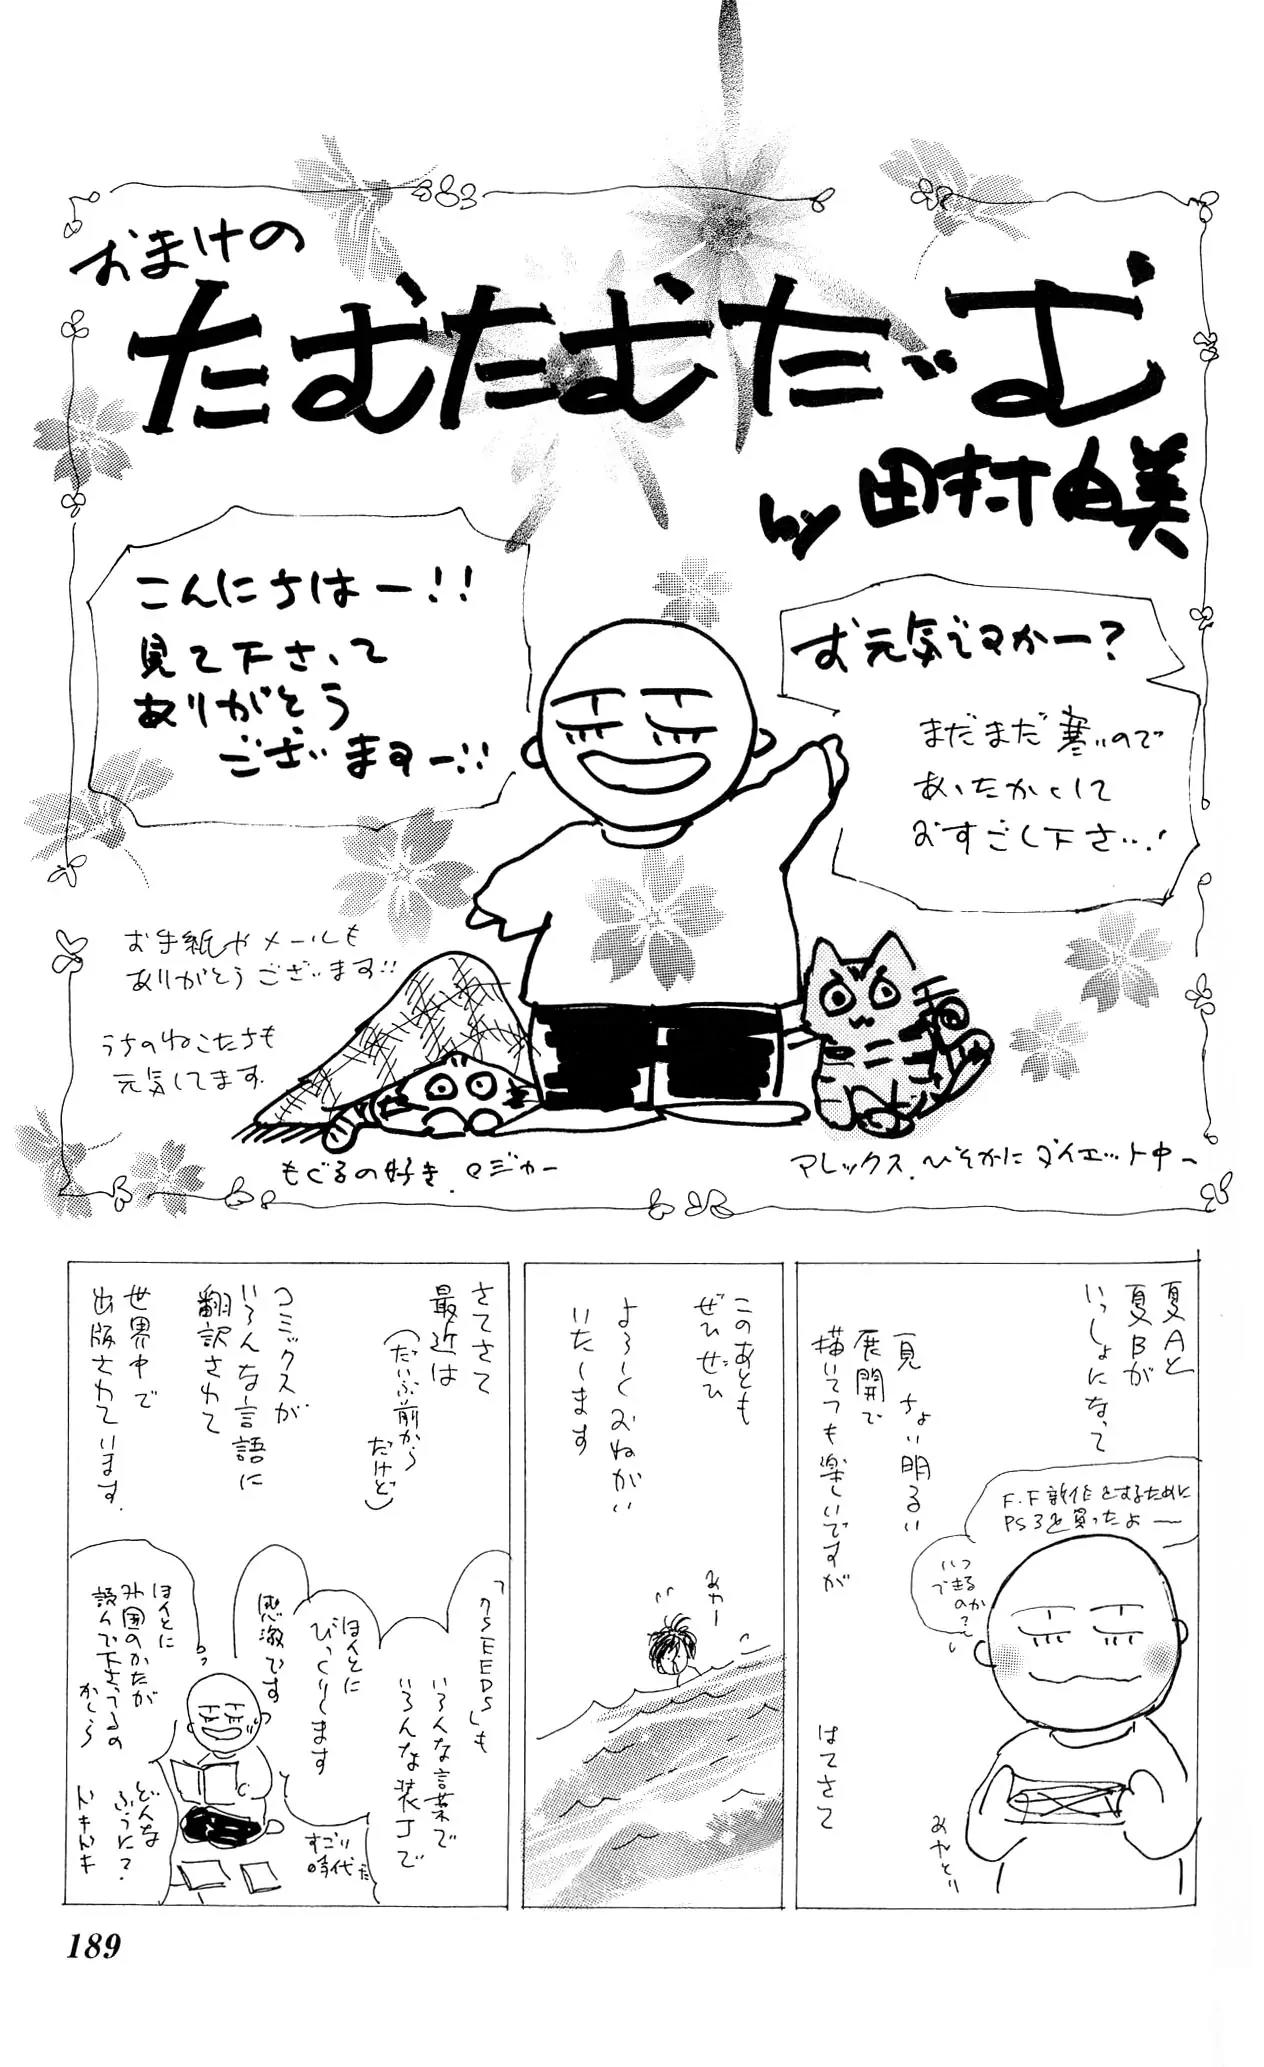 おまけの
たむたむたいむ
by 田村由美
こんにちはー!!
見て下さって
ありがとう
ございますー!!
お元気ですかー?
まだまだ寒いので
あったかくして
おすごし下さいー!
お手紙やメールも
ありがとうございます!!
うちのねこたちも
元気してます.
もぐるの好き.マジカー
アレックス.ひそかにダイエット中ー
夏Aと
夏Bが
いっしょになって
一見ちょい明るい
展開で
描いてつも楽しいですが
F.F新作をするために
PS3を買ったよー
いつ
できるのか?
あやとり
はてさて
このあとも
ぜひぜひ
よろしくおねがい
いたします
みゃー
さてさて
最近は
(だいぶ前から
だけど)
コミックスが
いろんな言語に
翻訳されて
世界中で
出版されています.
「7SEEDS」も
いろんな言葉で
いろんな装丁で
ほんとに
びっくりします
すごい
時代だ
感激です
ほんとに
外国のかたが
読んで下さってるの
かしら
どんな
ふうに?
ドキドキ
189